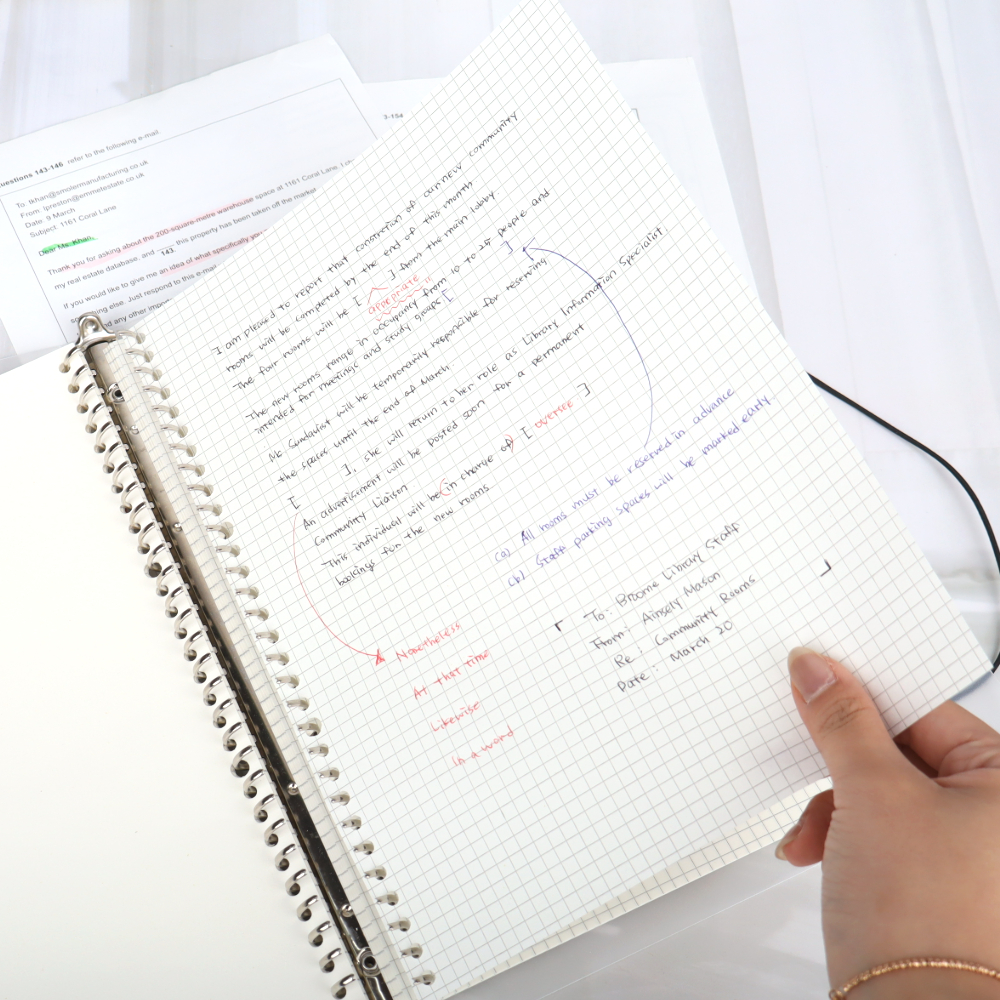 uestions 143-146 refer to the following e-mail.
To: tkhan@smolermanufacturing.co.uk
From: lpreston@emmetestate.co.uk
Date: 9 March
Subject: 1161 Coral Lane
Dear Ms. Khan,
Thank you for asking about the 200-square-metre warehouse space at 1161 Coral Lane. I
my real estate database, and ____ this property has been taken off the market
143.
If you would like to give me an idea of what specifically you
something else. Just respond to this e-mail
and any other impor
3-154
I am pleased to report that constrction of our new community
rooms will be completed by the end of this month
The four rooms will be [ ] from the main lobby
apropriate
The new rooms range in occupancy from 10 to 25 people and
intended for meetings and study groups [ ]
Ms. Sundquist will be temporarily responsible for reserving
the spaces until the end of March
[ ], she will return to her role as Library Information Specialist
An advertisement will be posted soon for a permanent
Community Liaison
This individual will be in charge of [ oversee ]
bookings for the new rooms
(a) All rooms must be reserved in advance
(b) Staff parking spaces will be marked early
Nonetheless
At that time
Likewise
In a word
「 To: Broome Library Staff
From: Ainsely Mason
Re: Community Rooms
Date: March 20 」